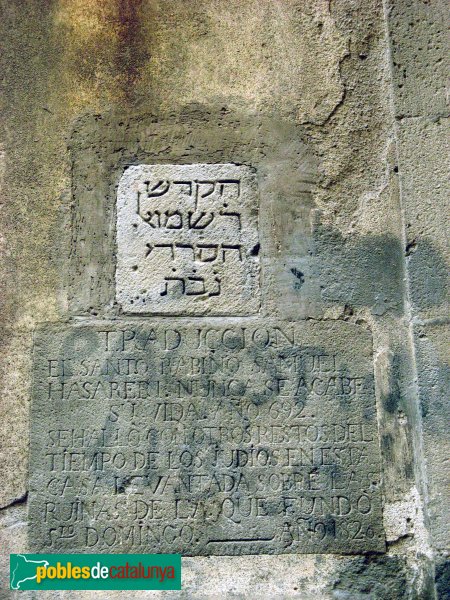 הקדש
ר שמוא
הסרדי
נבת
TRADUCCION
EL SANTO RABINO SAMUEL
HASAREDI: NUNCA SE ACABE
SU VIDA. AÑO 692.
SE HALLO CON OTROS RESTOS DEL
TIEMPO DE LOS JUDIOS EN ESTA
CASA LEVANTADA SOBRE LAS
RUINAS DE LA QUE FUNDÓ
Sto DOMINGO. AÑO 1820
poblesdecatalunya